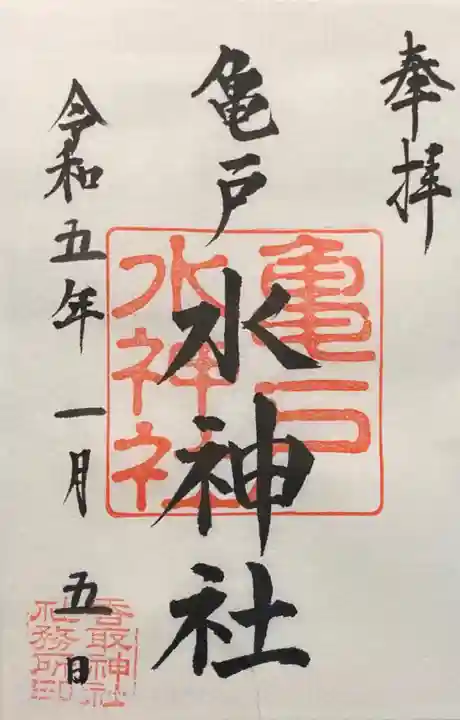 奉拝
亀戸水神社
令和五年一月五日
亀戸
水神社
香取神社
社務所印